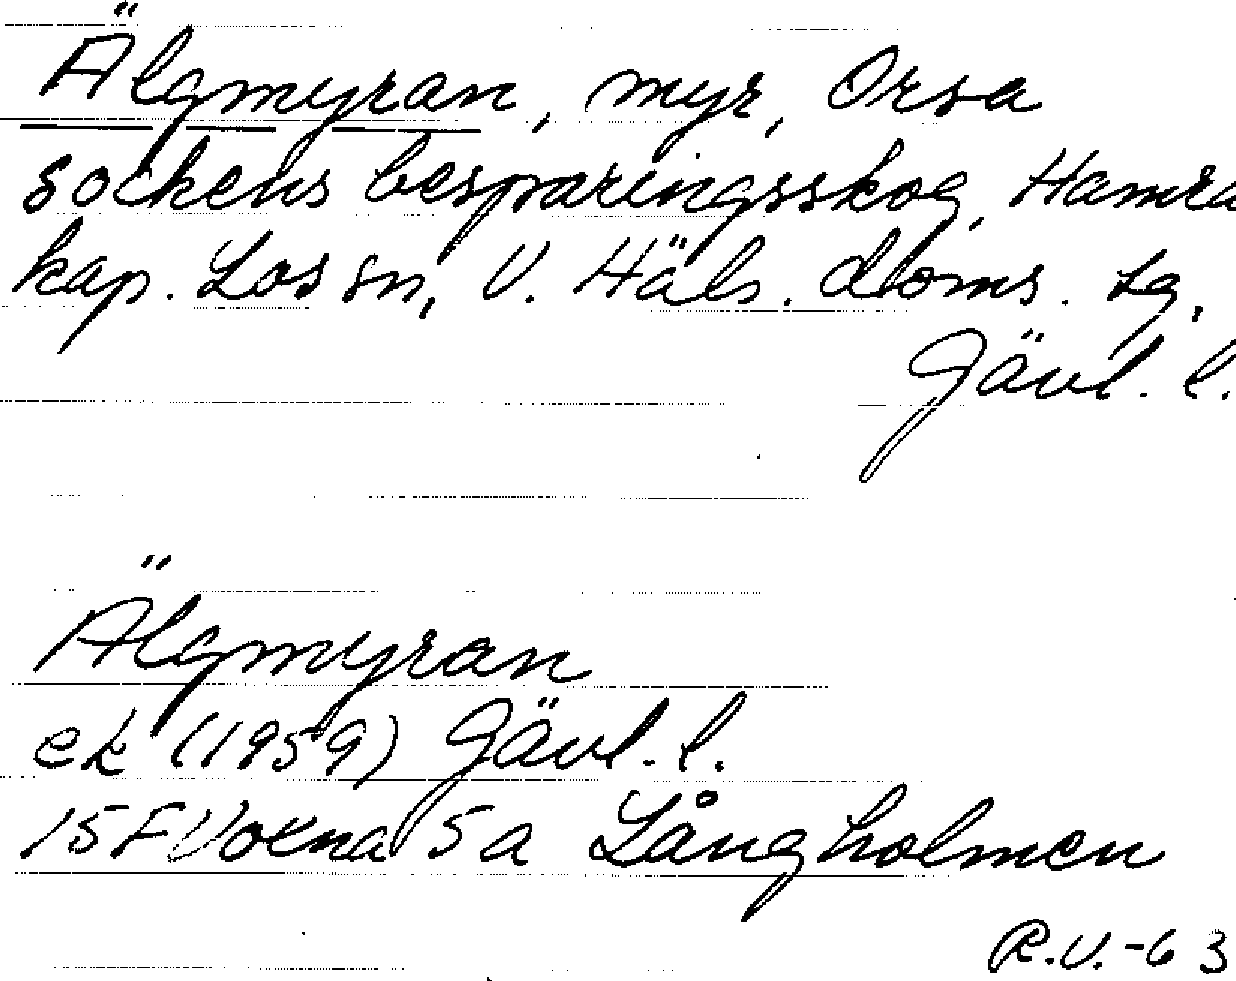 Älgmyran, myr, Orsa
sockens besparingsskog, Hamra
kap. Los sn, V. Häls. doms. tg,
Gävl. l.
Älgmyran
ek (1959) Gävl. l.
15F Voxna 5a Långholmen
R.V.-63